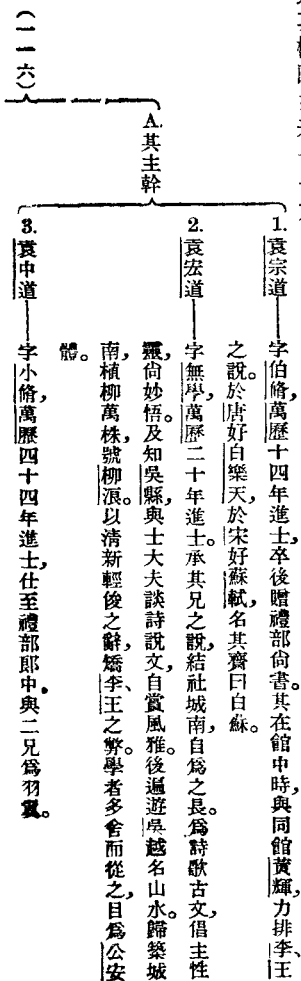 A.其主幹
1.袁宗道——字伯脩,萬曆十四年進士,卒後贈禮部尙書。其在館中時,與同館黃輝,力排李、王
之說。於唐好白樂天,於宋好蘇軾,名其齋曰白蘇。
2.袁宏道——字無學,萬曆二十年進士。承其兄之說,結社城南,自爲之長。爲詩歌古文,倡主性
靈,尙妙悟。及知吳縣,與士大夫談詩說文,自賞風雅。後遍遊吳越名山水。歸築城
南,植柳萬株,號柳浪。以清新輕俊之辭,矯李、王之弊。學者多舍而從之,目爲公安
體。
3.袁中道——字小脩,萬曆四十四年進士,仕至禮部郎中。與二兄爲羽翼。
(一一六)